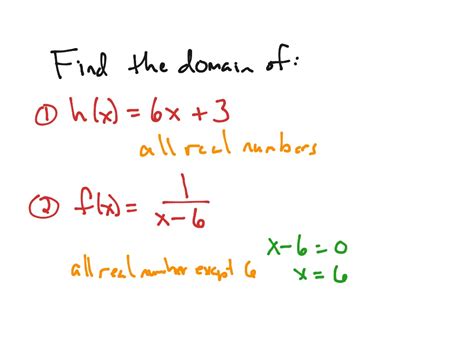 Find the domain of:
① h(x) = 6x + 3
all real numbers
② f(x) = 1/(x-6)
x-6 = 0
all real number except 6
x = 6